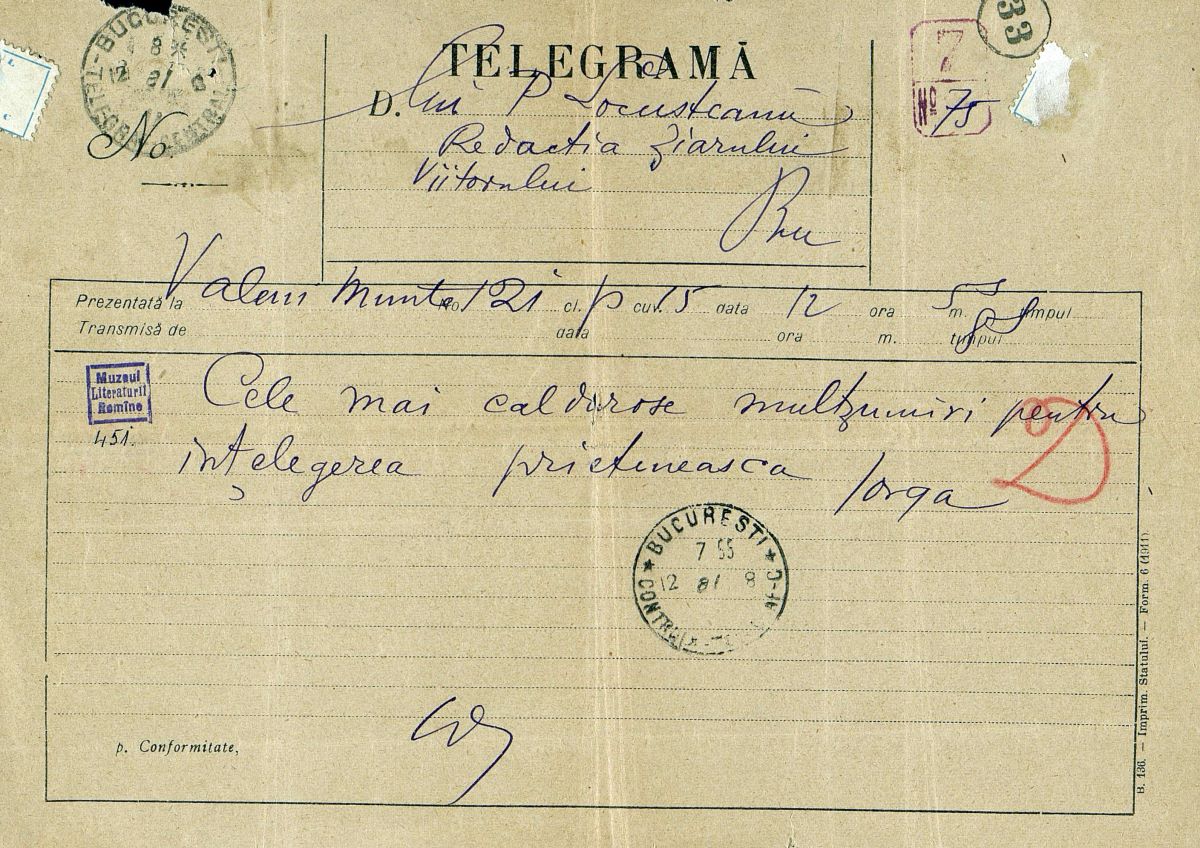 BUCURESTI
12 81 8
TELEGRAF CENTRAL
33
Z
No 75
TELEGRAMĂ
D. lui P Locusteanu
Redactia ziarului
Viitorului
Buc
No.
Prezentată la Valeni Munte No. 121 cl. p cuv. 15 data 12 ora 5 m. 55 timpul S
Transmisă de data ora m. timpul
Muzeul
Literaturii
Romîne
451.
Cele mai caldurose multzumiri pentru
ințelegerea prieteneasca Iorga
BUCURESTI
7 55
12 81 8
p. Conformitate,
B. 136. — Imprim. Statului. — Form. 6 (1911).